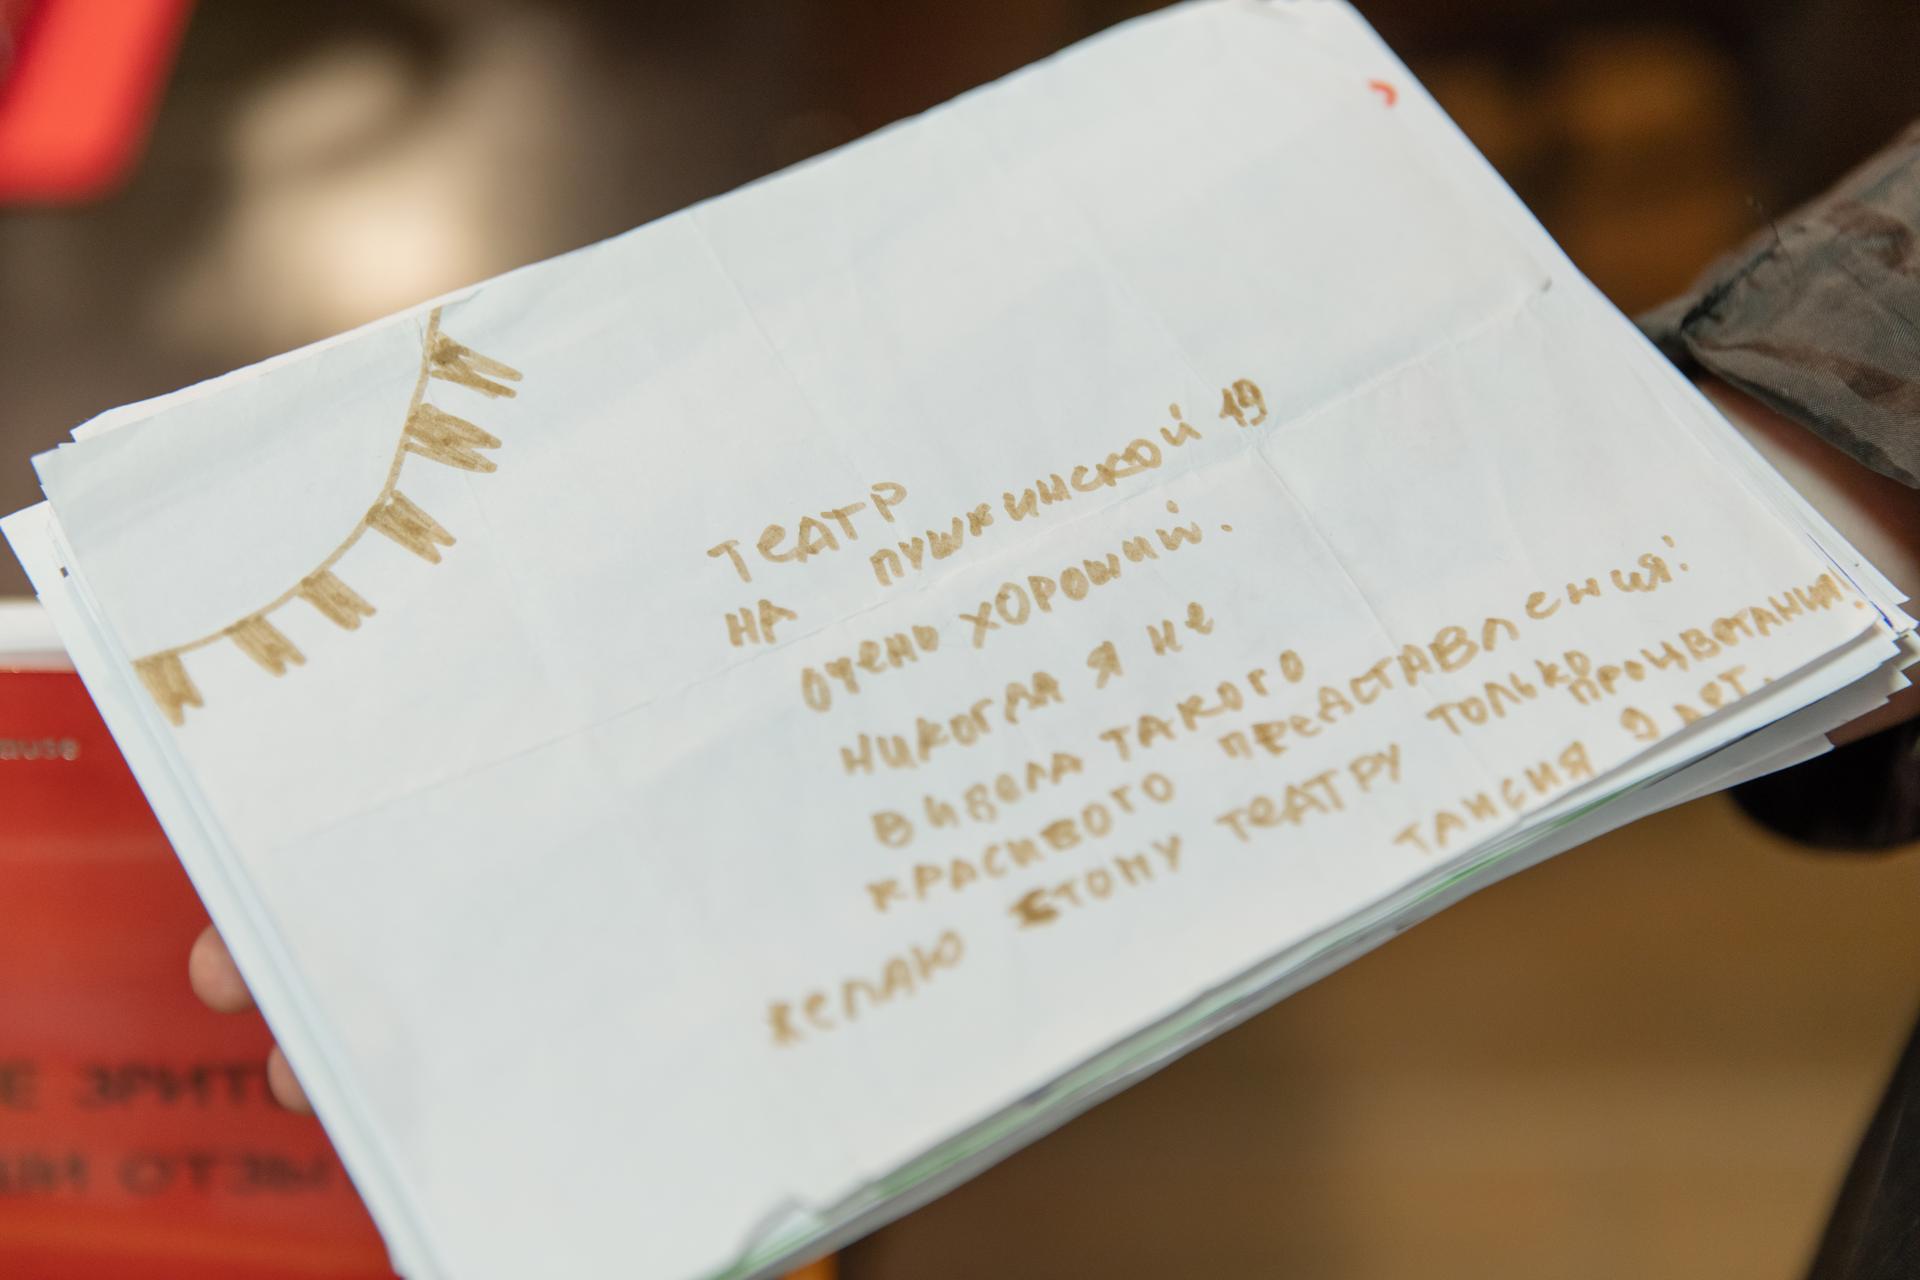 ТЕАТР
НА ПУШКИНСКОЙ 19
ОЧЕНЬ ХОРОШИЙ.
НИКОГДА Я НЕ
ВИДЕЛА ТАКОГО
КРАСИВОГО ПРЕДСТАВЛЕНИЯ!
ЖЕЛАЮ ЕТОМУ ТЕАТРУ ТОЛЬКО ПРОЦВЕТАНИЯ!
ТАИСИЯ 9 ЛЕТ.
ause
Е ЗРИТЕ
ОТЗЫ